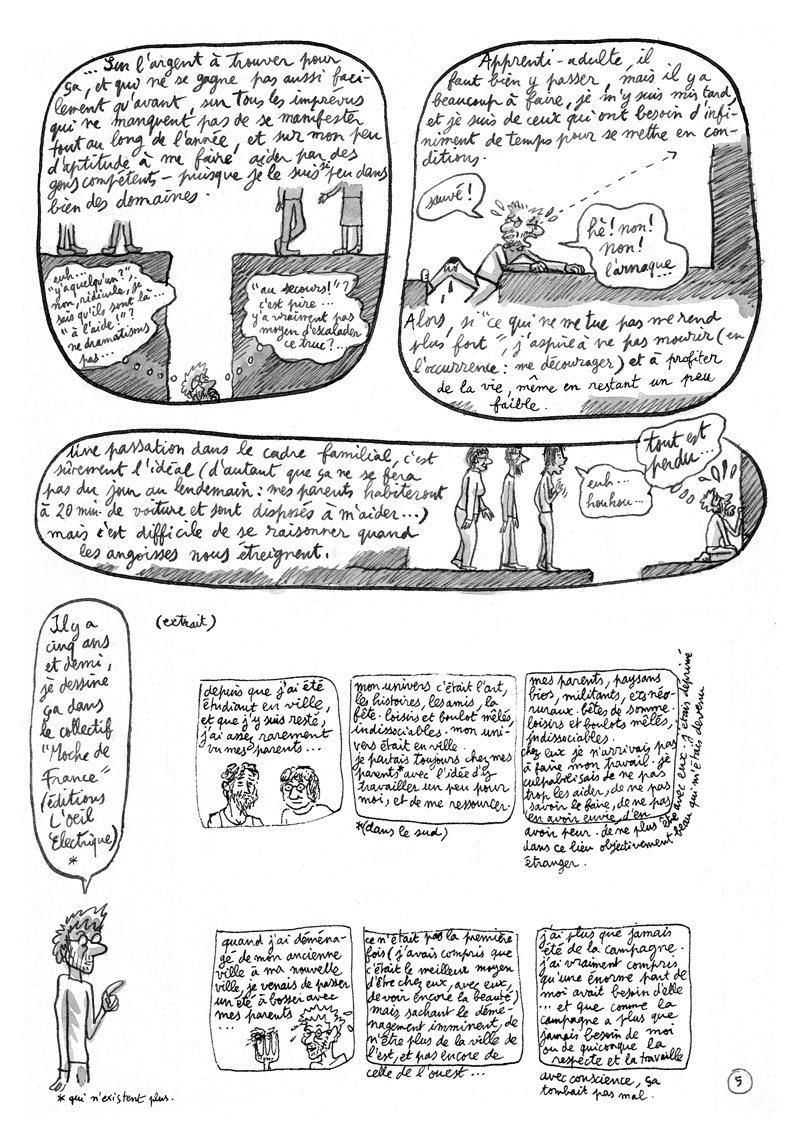 ... Sur l'argent à trouver pour
ça, et qui ne se gagne pas aussi faci-
lement qu'avant, sur tous les imprévus
qui ne manquent pas de se manifester
tout au long de l'année, et sur mon peu
d'aptitude à me faire aider par des
gens compétents – puisque je le suis si peu dans
bien des domaines.
euh...
"y'a quelqu'un?",
non, ridicule, je
sais qu'ils sont là...
"à l'aide!"?
ne dramatisons
pas...
"au secours!"?
c'est pire...
y'a vraiment pas
moyen d'escalader
ce truc?...
Apprenti-adulte, il
faut bien y passer, mais il y a
beaucoup à faire, je m'y suis mis tard,
et je suis de ceux qui ont besoin d'infi-
niment de temps pour se mettre en con-
ditions.
sauvé!
hé! non!
non!
l'arnaque...
Alors, si "ce qui ne me tue pas me rend
plus fort", j'aspire à ne pas mourir (en
l'occurrence: me décourager) et à profiter
de la vie, même en restant un peu
faible.
Une passation dans le cadre familial, c'est
sûrement l'idéal (d'autant que ça ne se fera
pas du jour au lendemain: mes parents habiteront
à 20 min. de voiture et sont disposés à m'aider...)
mais c'est difficile de se raisonner quand
les angoisses nous étreignent.
euh...
houhou...
tout est
perdu...
Il y a
cinq ans
et demi,
je dessine
ça dans
le collectif
"Moche de
France"
(éditions
L'oeil
Electrique)
*
* qui n'existent plus.
(extrait)
depuis que j'ai été
étudiant en ville,
et que j'y suis resté,
j'ai assez rarement
vu mes parents...
mon univers c'était l'art,
les histoires, les amis, la
fête. loisirs et boulot mêlés,
indissociables. mon uni-
vers était en ville.
je partais toujours chez mes
parents* avec l'idée d'y
travailler un peu pour
moi, et de me ressourcer.
*(dans le sud)
mes parents, paysans
bios, militants, ets néo-
ruraux. bêtes de somme.
loisirs et boulots mêlés,
indissociables.
chez eux je n'arrivais pas
à faire mon travail. je
culpabilisais de ne pas
trop les aider, de ne pas
savoir le faire, de ne pas
en avoir envie, d'en
avoir peur. de ne plus être avec eux. j'étais déprimé
dans ce lieu objectivement beau qui m'était devenu
étranger.
quand j'ai déména-
gé de mon ancienne
ville à ma nouvelle
ville, je venais de passer
un été à bosser avec
mes parents
...
ce n'était pas la première
fois (j'avais compris que
c'était le meilleur moyen
d'être chez eux, avec eux,
de voir encore la beauté)
mais sachant le démé-
nagement imminent, de
n'être plus de la ville de
l'est, et pas encore de
celle de l'ouest...
j'ai plus que jamais
été de la campagne.
j'ai vraiment compris
qu'une énorme part de
moi avait besoin d'elle
... et que comme la
campagne a plus que
jamais besoin de moi
ou de quiconque la
respecte et la travaille
avec conscience, ça
tombait pas mal.
5